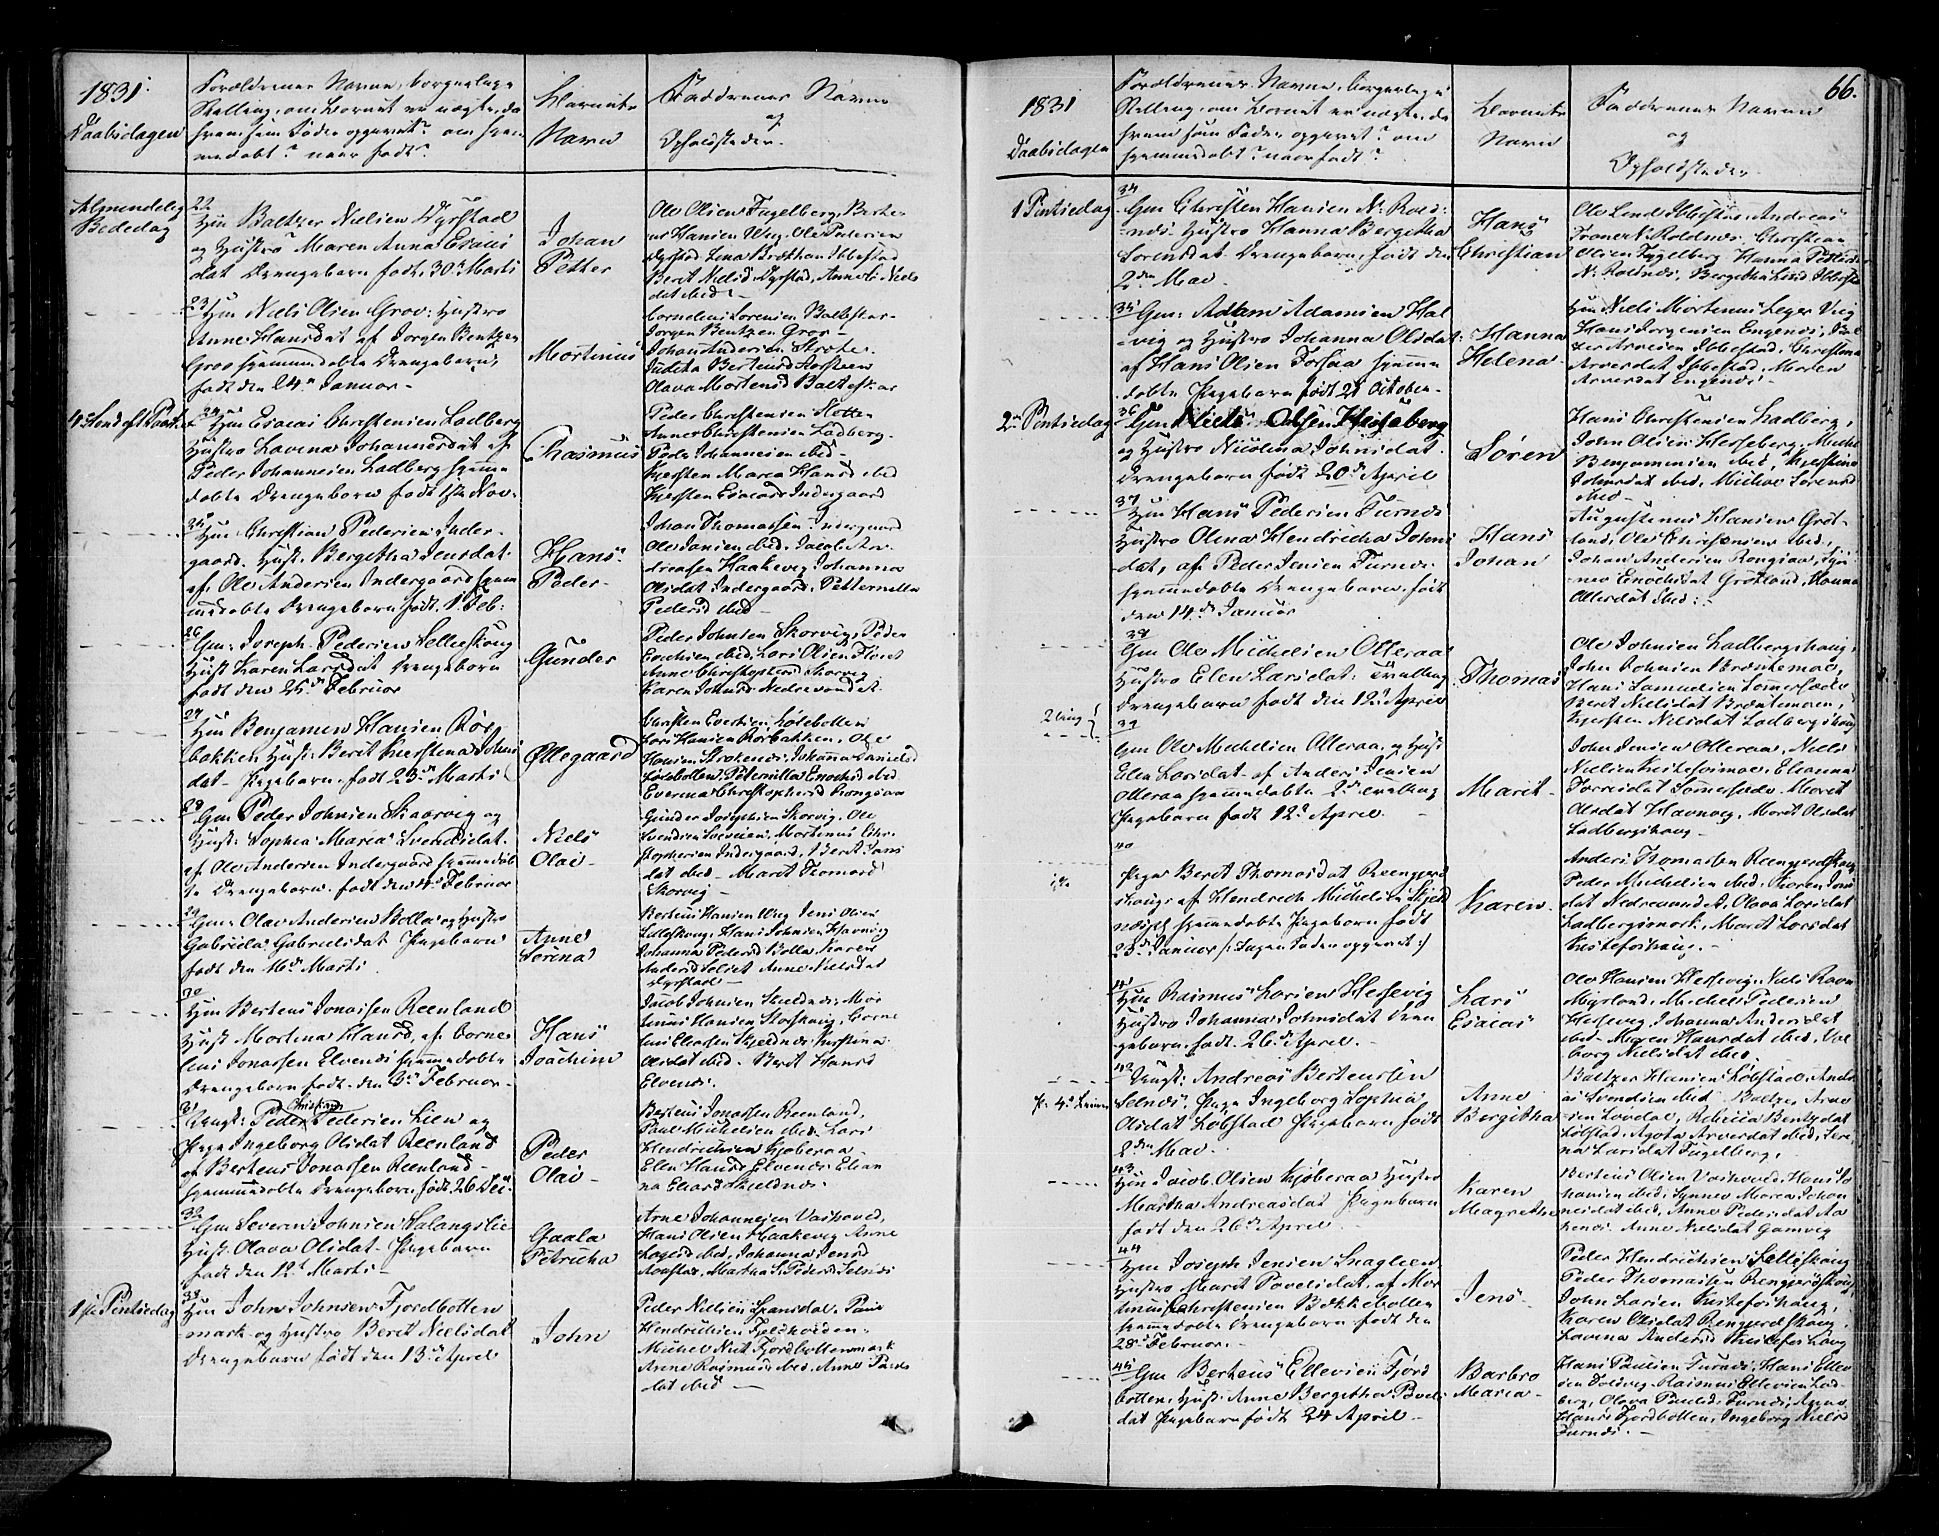 1831.
Daabsdagen
Forældrenes Navne, borgerlige
Stilling, om Barnet er ægte, da
hvem som Fader opgivet? om hjem
medøbt? naar født?
Barnets
Navn
Faddrenes Navne
og
Opholdsteder.
Almindelig
Bededag
22
Gm Baltzer Nielsen Dyrstad
og Hustro Maren Anna Esaias
dat Drengebarn født 30 Marts
Johan
Petter
Ole Olsen Fugelberg, Berte
us Hansen Vug, Ole Pedersen
Dyrstad, Lena Brækhan Ibbestad
Berit Nielsd Dyrstad, Anne Niels
dat ibid
23
Gm Niels Olsen Grov: Hustro
Anne Hansdat af Jørgen Bentzen
Grov hjemmedøbte Drengebarn,
født den 24 Januar -
Mortinus
Cornelius Sørensen Baltestar
Jørgen Bentzen Grov -
Johan Andersen
Juditha Berteusd
Olava Mortensd Baltestar
24
Gm Esaias Christensen Ladberg
Hustro Lavina Johannesdat af
Peder Johannesen Ladberg hjemme
døbte Drengebarn født 1ste Nov.
Rasmus
Peder Christensen
Anner Christensen Ladberg.
Peder Johannesen ibid -
Kjersten Maria Hansd ibid
Kjersten Esaiasd Indergaard
25
Gm Christian Pedersen Inder-
gaard. Hust. Bergitha Jensdat.
af Ole Andersen Indergaard hjem
medøbte Drengebarn født 1 Feb:
Hans
Peder -
Johan Thomassen Indergaard
Ole Jonsen ibid, Jacob An-
dreasen Haakevig Johanna
Olsdat Indergaard. Petternella
Pedersd ibid -
26
Gm: Joseph Pedersen Lilleskoug
Hust Karen Larsdat Drengebarn
født den 25 Februar
Gunder
Peder Johnsen Skorvig, Peder
Enochsen ibid, Lars Olsen
Anne Christophersd Skorvig
Karen Johnsd Nedrevandet
27
Gm Benjamin Hansen Rør
bakken Hust. Berit Kjerstena Johns
dat - Pigebarn. født 23 Marts
Ollegaard
Christen Evertsen Løsebotten
Lars Hansen Rørbakken, Ole
Hansen Johanna Danielsd
Løsebotten, Peternilla Enochsd ibid
Everina Christophersd Rongsaa
28
Gm Peder Johnsen Skaarvig og
Hust: Sophia Maria Svendsdat.
af Ole Andersen Indergaard hjemmedøb
te Drengebarn. født den Februar
Niels
Olai -
Gunder Josephsen Skorvig. Ole
Svendsen Mortenus Chr-
stophersen Indergaard, Berit Jans
dat ibid - Marit Tromasd
Skorvig -
29
Gm: Olai Andersen Bolla og Hustro
Gabriela Gabrielsdat Pigebarn
født den Marts
Anne
Sørena
Berteus Hansen Vug Jens Olsen
Lilleskoug. Hans Johnsen Havnvig
Johanna Pedersd Bolla, Karen
Andersd Selset Anne Nielsdat
Dyrstad -
30
Gm Berteus Jonassen Reenland
Hust Mortina Hansd, af Corne
lius Jonassen Elvenes hjemmedøbte
Drengebarn født den 3 Februar -
Hans
Joachim
Jacob Johnsen Skieldnes. Mor
tinus Hansen Storskoug, Corne
lius Eliassen Skieldnes, Kirstina
Olsdat ibid - Berit Hansd
Elvenes.
31
Uægt: Peder Pedersen Lien og
Pige Ingeborg Olsdat Reenland
af Berteus Jonassen Reenland -
hjemmedøbte Drengebarn, født 26 Dec.
Peder
Olai -
Berteus Jonassen Reenland,
Paul Michelsen ibid. Lars
Hendrichsen Kjøberaa -
Ellen Hansd Elvenes. Elian
na Eliasd Skieldnes.
32
Gm Severin Johnsen Salangslie
Hust. Olava Olsdat - Pigebarn
født den 12 Marts -
Gaala
Petricha
Arne Johannesen Vashoved,
Hans Olsen Haakevig Anne
ibid, Johanna Jensd
Martha S. Pedersd Selnes
1ste Pintsedag
33
Gm John Johnsen Fjordbotten
mark og Hustro Berit Nielsdat
Drengebarn født den 13 April
John
Peder Nielsen Spansdal, Paul
Hendrichsen
Michel Fjordbottenmark
Anne Rasmusd ibid, Anne Peders
dat ibid -
66.
1831
Daabsdagen
Forældrenes Navne, borgerlige
Stilling, om Barnet er ægte, da
hvem som Fader opgivet? om
hjemmedøbt? naar født?
Barnets
Navn
Faddrenes Navne
og
Opholdsteder
1 Pintsedag
34
Gm Christen Hansen N. Rold-
nes. Hustro Hanna Bergetha
Sørensdat Drengebarn, født den
2den Mai
Hans
Christian
Ole Lind Ibbestad, Andreas
N. Roldnes, Christian
Olsen Fugelberg, Hanna Pedersd
N. Roldnes, Bergetha Lind Ibbestad
35
Gm: Adam Adamsen Hal
vig og Hustro Johanna Olsdat:
af Hans Olsen Forsaa hjemme
døbte Pigebarn født 21 October -
Hanna
Helena
Gm Niels Mortenus Leger Vug
Hans Jørgensen Engenes,
Ibbestad, Christena
Arnesdat Ibbestad, Maren
Arnesdat Engenes -
2den Pintsedag
36
Gm Niels Olsen Hesseberg
og Hustro Nicolina Johnsdat.
Drengebarn født 20de April
Søren
Hans Christensen Ladberg,
John Olsen Hesseberg, Michel
Benjaminsen ibid, Kjerstina
Johnsdat ibid, Sørensd
ibid -
37
Gm Hans Pedersen Furnes
Hustro Olina Hendricha Johns
dat, af Peder Jensen Furnes
hjemmedøbte Drengebarn, født
den 14de Januar
Hans
Johan
Augustenus Hansen Grøt-
land, Ole Christensen ibid,
Johan Andersen Rongsaa,
Enochsdat Grøtland, Hanna
Ollesdat ibid: -
38
Gm Ole Michelsen Olleraa
Hustro Elen Larsdat: Tvilling
Drengebarn født den 12te April
Thomas
Ole Johnsen Ladbergshoug,
John Johnsen Brøntemoe,
Hans Samuelsen Sommersæde
Berit Nielsdat Brøntemoen,
Kjersten Nielsdat Ladbergshoug
2ling
39
Gm Ole Michelsen Olleraa, og Hust
Elen Larsdat - af Anders Jensen
Olleraa hjemmedøbte 2d Tvilling
Pigebarn født 12te April.
Marit -
John Jensen Olleraa, Niels
Nielsen Kristofersmoe, Elianna
Sommersæde. Marit
Olsdat Havnvig, Marit Olsdat
Ladbergshoug -
40
Pige Berit Thomasdat Reengjerd
skoug af Hendrich Michelsen Skjeld
næs hjemmedøbte Pigebarn født
23de Januar /: Ingen Fader opgivet :/
Karen -
Anders Thomassen Reengjerdskoug
Peder Michelsen ibid, Karen Jens
dat Nedrevand, Olava Larsdat
Ladbergsmark, Marit Larsdat
Kristofershoug -
41
Gm Rasmus Larsen Hessevig
Hustro Johanna Johnsdat Dren
gebarn, født. 26de April. -
Lars
Esaias
Ole Hansen Hessevig. Niels Ravn
Myrland, Michel Pedersen
Hessevig, Johanna Andersdat
ibid - Maren Hansdat ibid, Vol
borg Nielsdat ibid.
42
Uægt: Andreas Berteussen
Selnes. Pige Ingeborg Sophia
Olsdat Løbstad Pigebarn født
2den Mai -
Anne
Bergitha
Baltzer Hansen Løbstad, Ande
as Svendsen ibid Baltzer Arne
sen Løvdal, Rebecca Bentzdat
Løbstad, Agota Arnesdat ibid, Sere
na Larsdat Fugelberg,
43
Gm Jacob Olsen Kjøberaa Hustro
Martha Andreasdat Pigebarn
født den 26de April -
Karen
Magrethe
Berteus Olsen Vashoved, Hans Jo
hansen ibid, Synnev Maria Johan
nesdat ibid, Anne Pedersdat Aa
Anne Nielsdat Gamvig
44
Gm Joseph Jensen Snagleen
Hustro Marit Povelsdat, af Mor
tinus Christensen Bækkebotten
hjemmedøbte Drengebarn født den
28de Februar.
Jens -
Peder Hendrichsen Lilleskoug
Peder Thomassen Rengjerdskoug
John Larsen Kristofershoug,
Karen Olsdat Rengjerdskoug,
Lavina Andersd Kristofershoug
45
Gm Berteus Ellevsen Fjord
botten, Hust. Anne Bergitha Poels
dat Pigebarn født 24 April -
Barbro
Maria -
Hans Paulsen Furnes, Hans Ellev
sen Foldvig, Rasmus Ellevsen Lad
berg, Olava Paulsd Furnes, Anne
Hansd Fjordbotten, Ingeborg Nielsd
Furnes. -